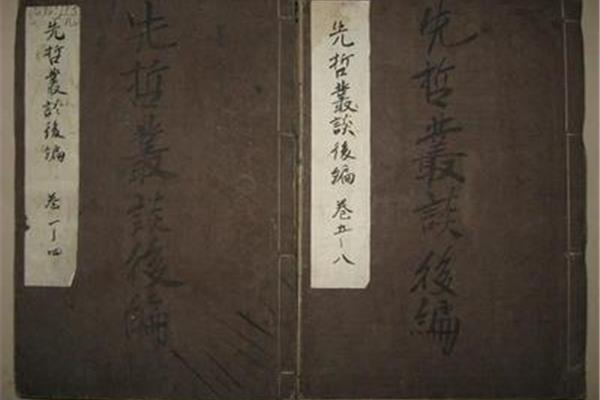 先哲叢談後編
巻五-八
先哲叢談後編
先哲叢談後編
巻一-四
先哲叢談後編